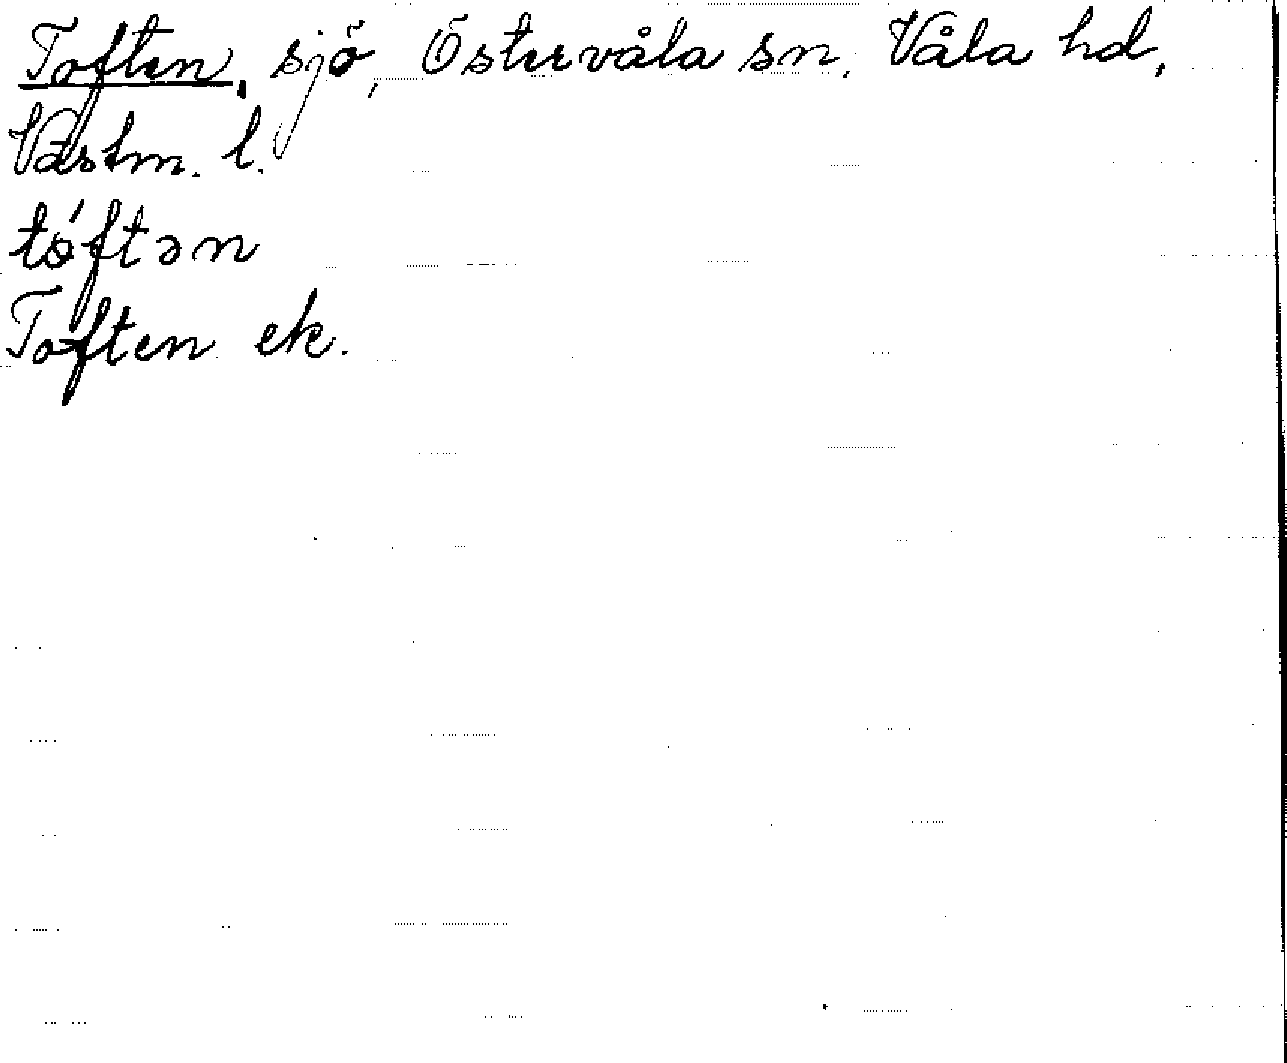 Toften, sjö, Östervåla sn, Våla hd,
Västm. l.
tóftən
Toften ek.